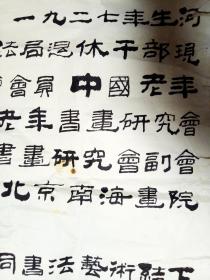 一九二七年生河
法局退休干部現
會員中國老年
老年書畫研究會
書畫研究會副會
北京南海畫院
同書法藝術結下